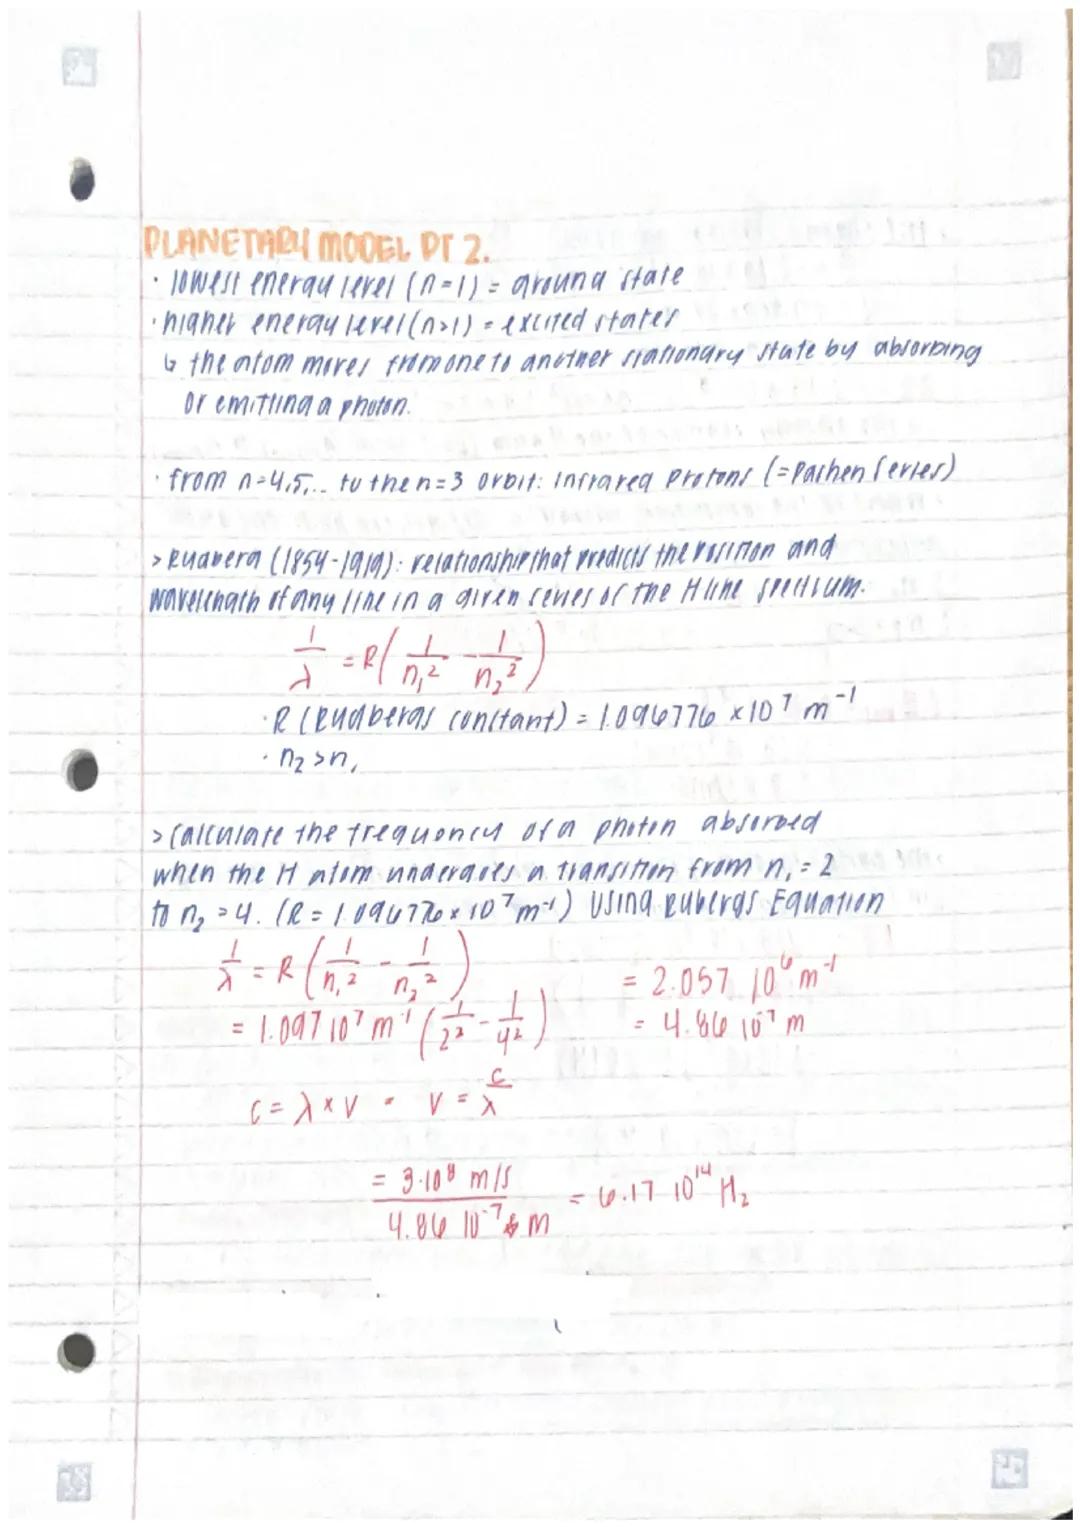 PLANETARY MODEL PT 2.
· lowest energy level (n=1) = ground state
· higher energy level (n>1) = excited states
↳ the atom moves from one to another stationary state by absorbing
or emitting a photon.
· from n=4,5,... to the n=3 orbit: infrared Protons (=Pachen Series)
> Rydberg (1854-1919): relationship that predicts the position and
wavelength of any line in a given series of the H line spectrum.
1/λ = R(1/n₁² - 1/n₂²)
· R (Rydbergs constant) = 1.096776 ×10⁷ m⁻¹
· n₂ > n₁
> calculate the frequency of a photon absorbed
when the H atom undergoes a transition from n₁ = 2
to n₂ = 4. (R = 1.096776 × 10⁷ m⁻¹) Using Rubergs Equation
1/λ = R(1/n₁² - 1/n₂²) = 2.057 10⁶ m⁻¹
= 1.097 10⁷ m⁻¹ (1/2² - 1/4²) = 4.86 10⁻⁷ m
c = λ × v = v = c/λ
= 3·10⁸ m/s / 4.86 10⁻⁷ m = 6.17 10¹⁴ Hz